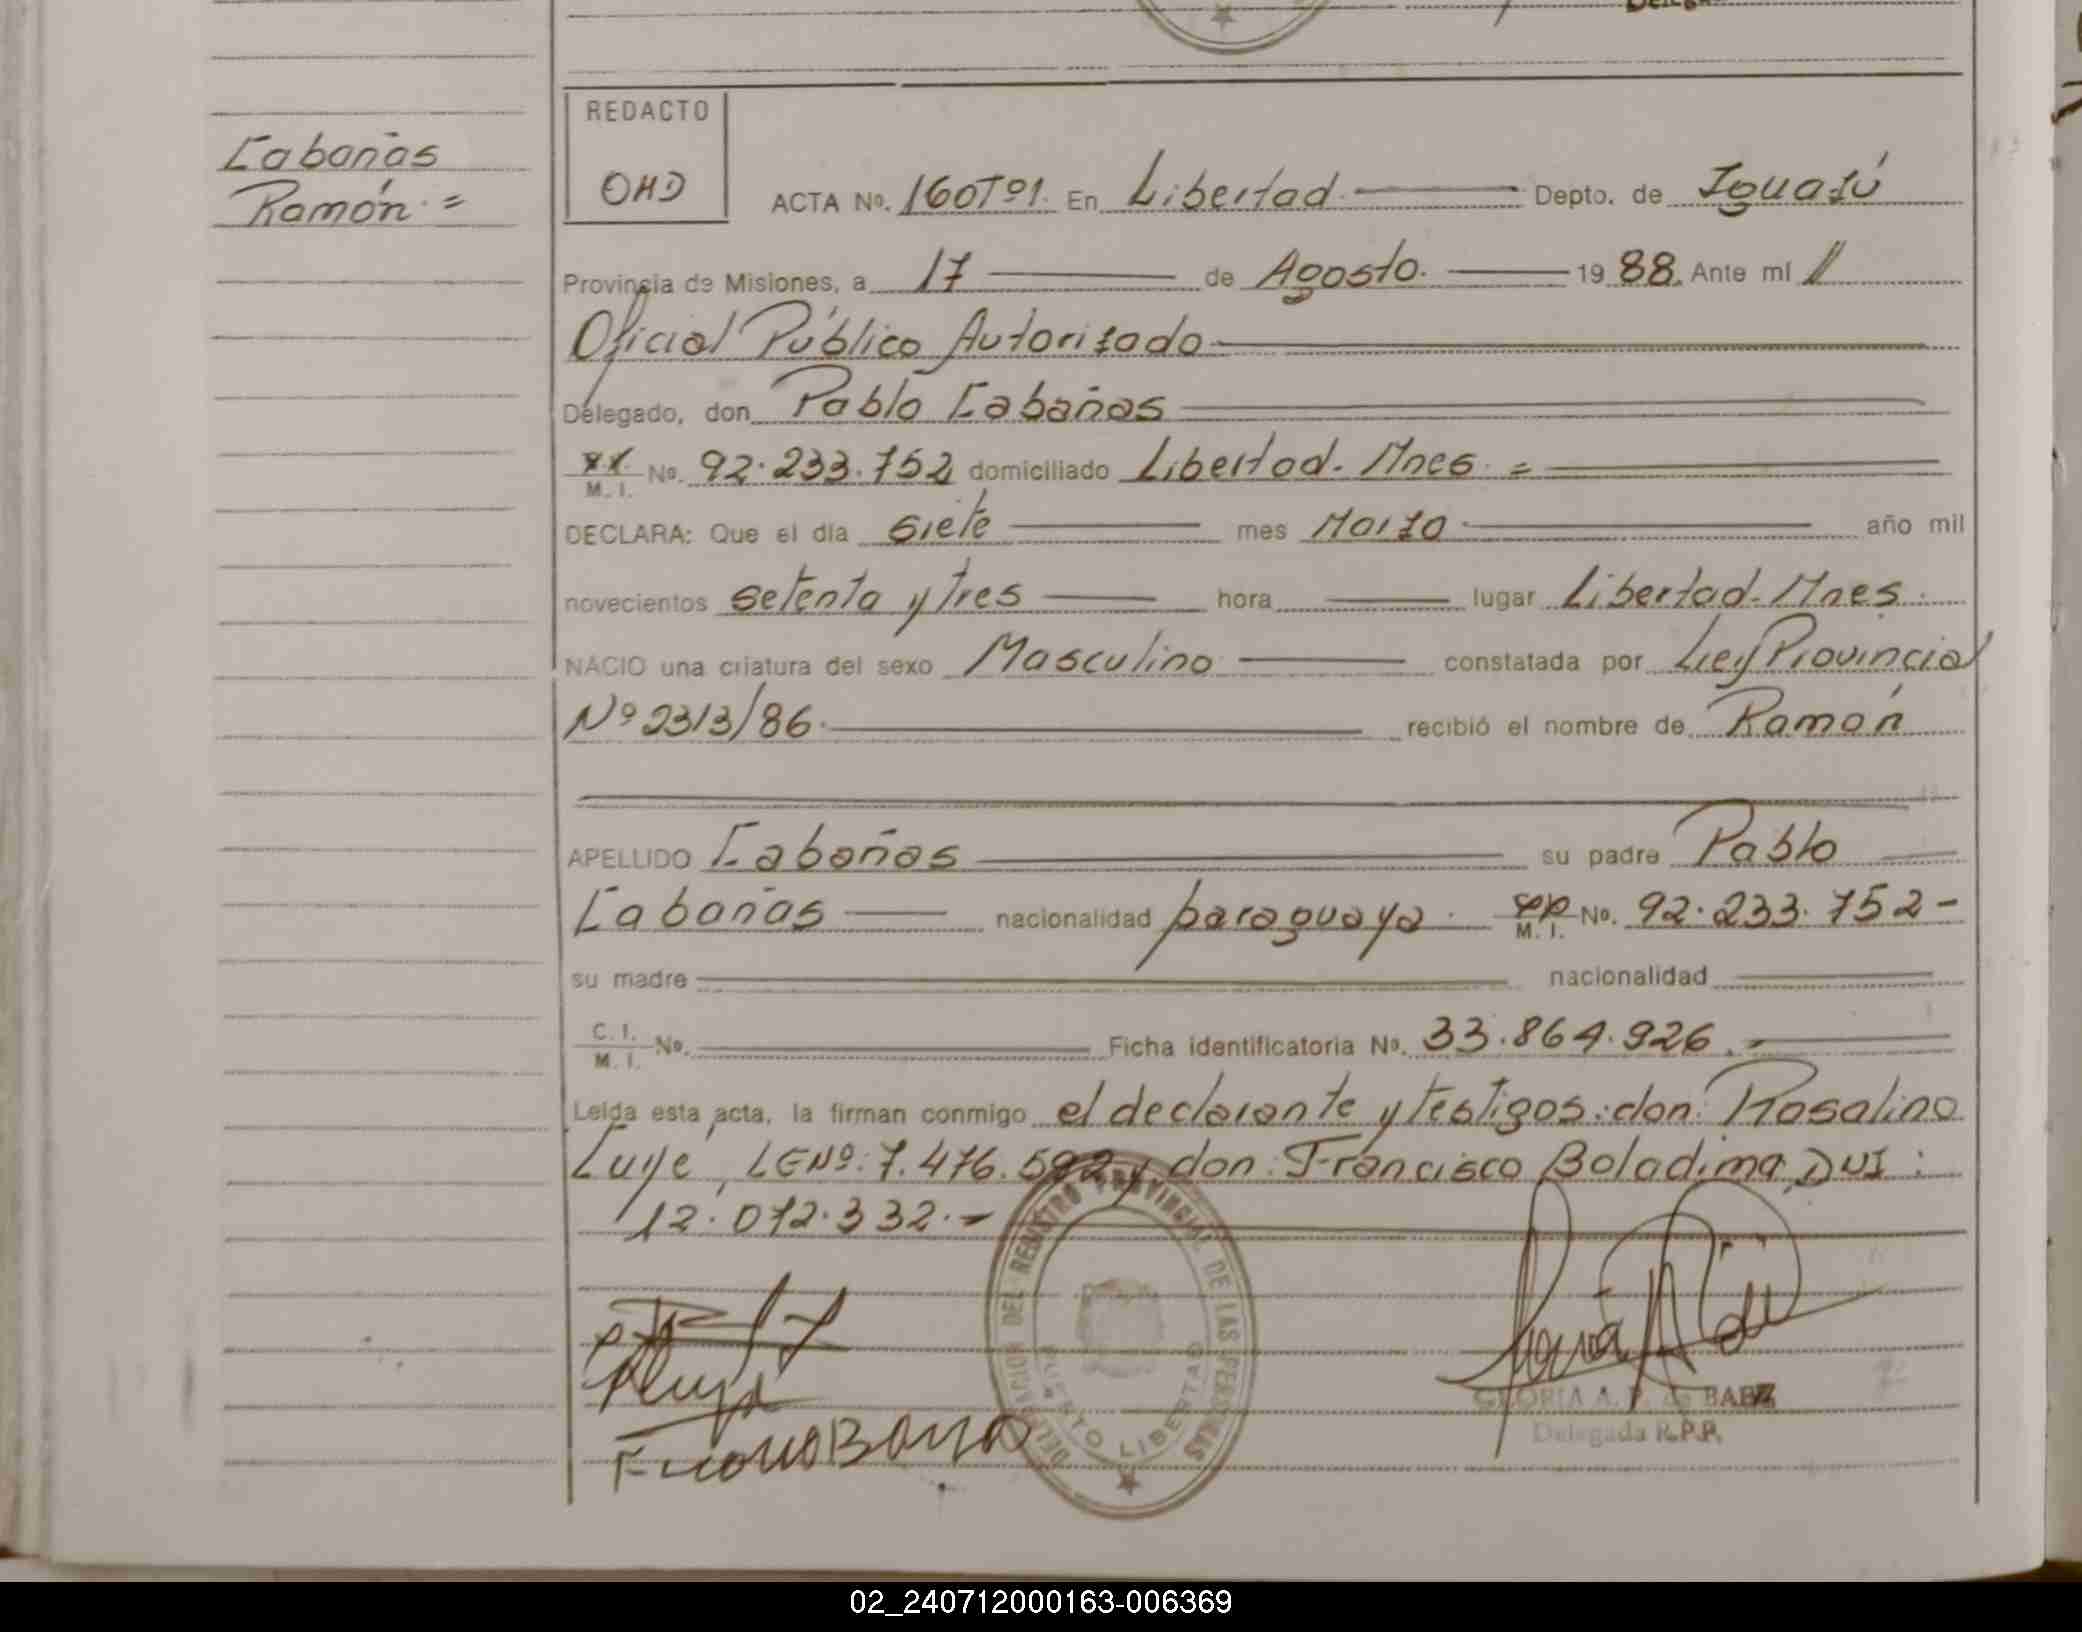 Cabañas
Ramón. =
REDACTO
OHD
ACTA Nº. 160Tº1. En Libertad Depto. de Iguazú
Provincia de Misiones, a 17 de Agosto. 1988. Ante mí
Oficial Público Autorizado
Delegado, don Pablo Cabañas
M. I. Nº. 92.233.752 domiciliado Libertad. Mnes. =
DECLARA: Que el día siete mes Marzo año mil
novecientos setenta y tres hora lugar Libertad. Mnes.
NACIO una criatura del sexo Masculino constatada por Ley Provincial
Nº 2313/86. recibió el nombre de Ramón
APELLIDO Cabañas su padre Pablo
Cabañas nacionalidad paraguaya. M. I. Nº. 92.233.752-
su madre nacionalidad
C. I. M. I. Nº. Ficha identificatoria Nº. 33.864.926.-
Leída esta acta, la firman conmigo el declarante y testigos: don: Rosalino
Luye, LENº: 7.476.592 y don: Francisco Boladima, DUI:
12.072.332.-
DELEGACION DEL REGISTRO PROVINCIAL DE LAS PERSONAS
PUERTO LIBERTAD
GLORIA A. P. de BAEZ
Delegada R.P.P.
02_240712000163-006369